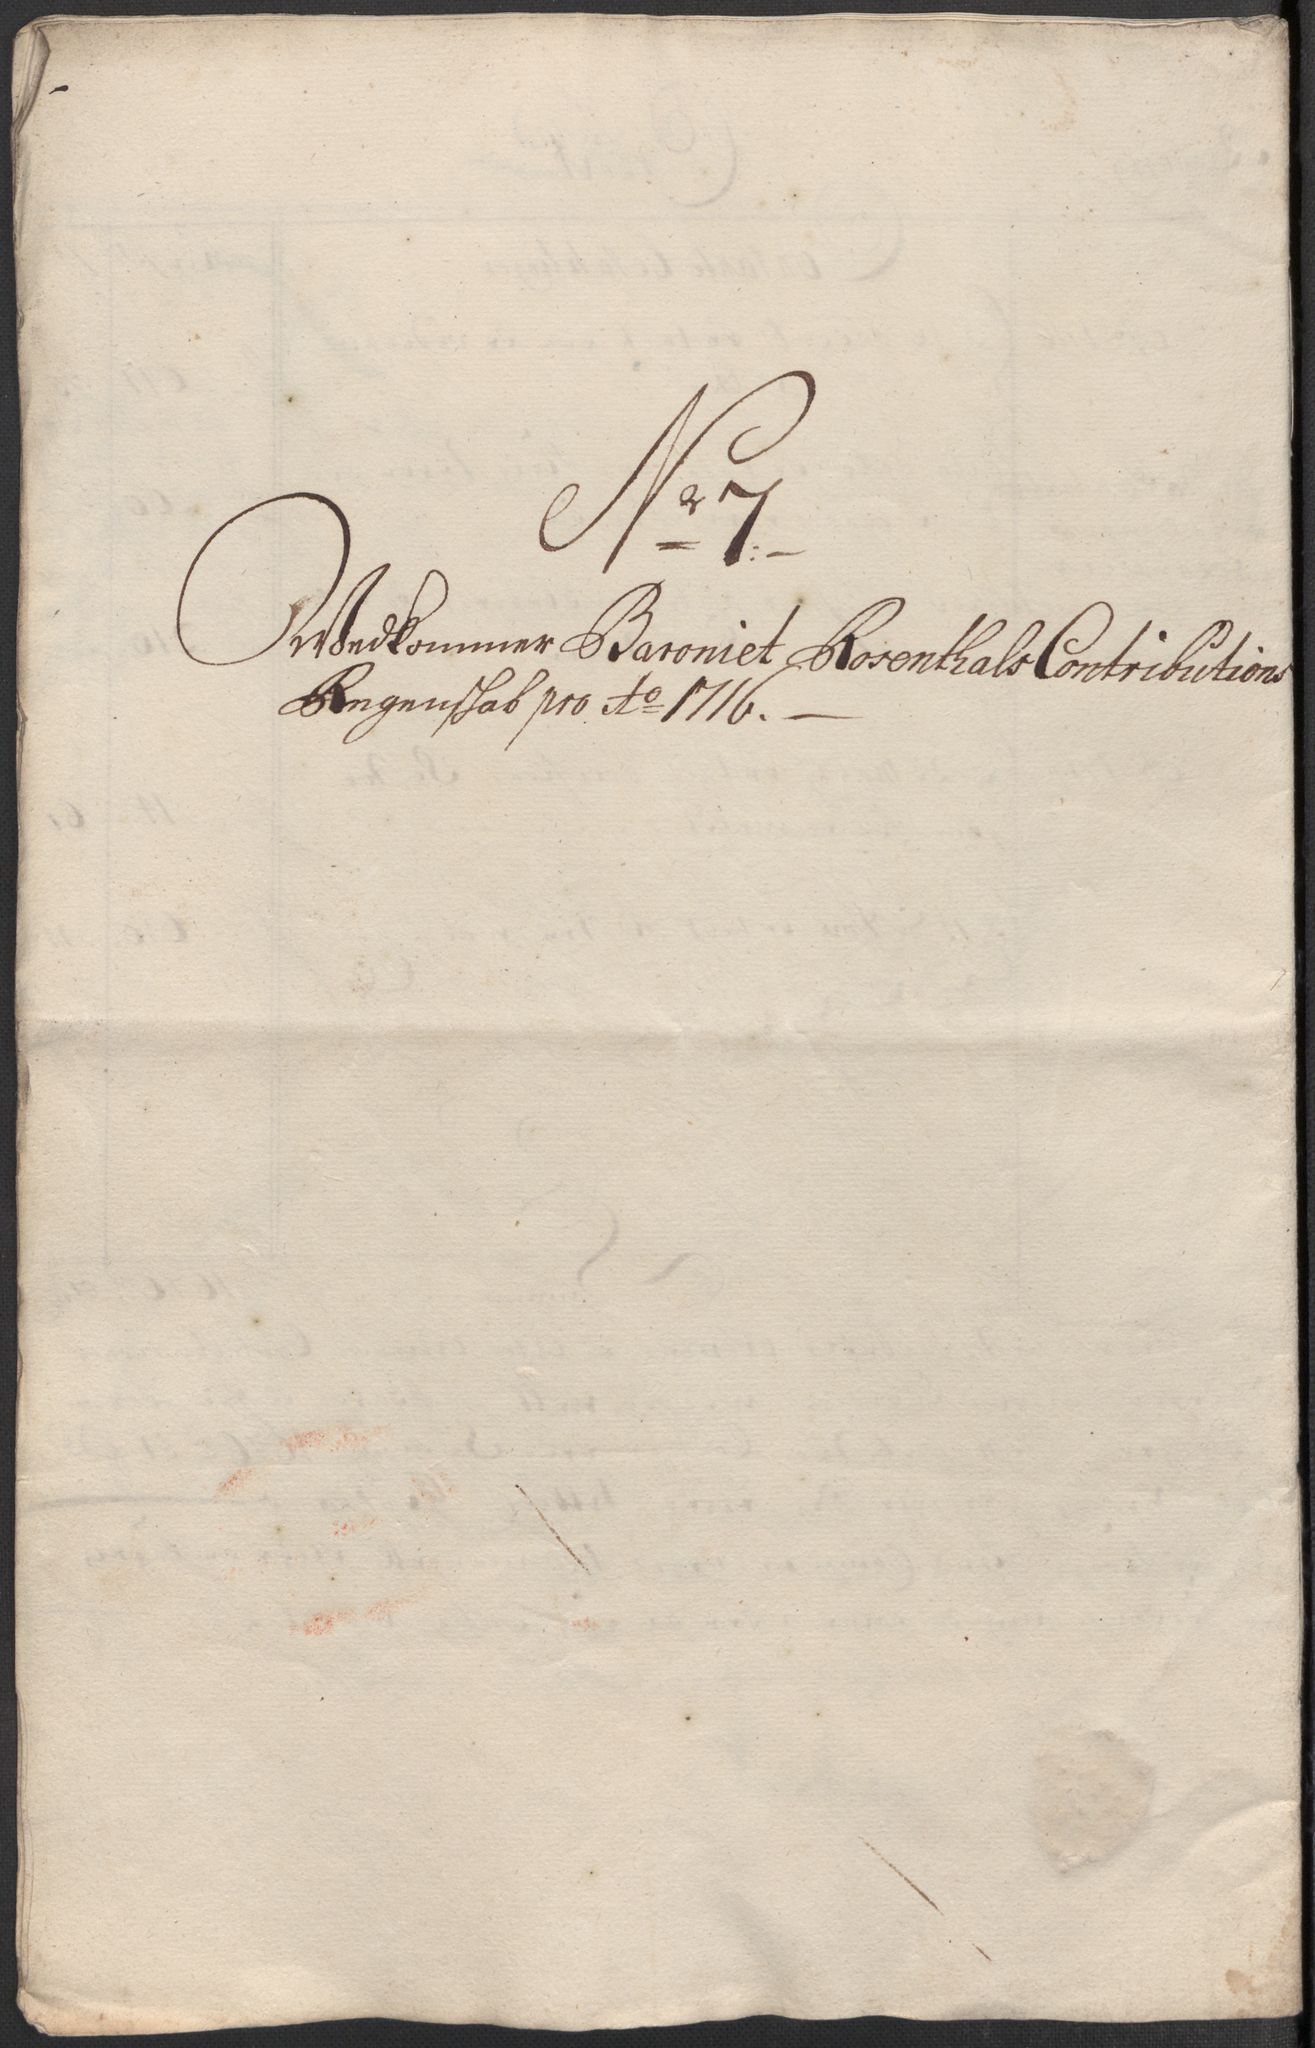 No 7:—
Wedkommer Baroniet Rosenthals Contributions
Regenskab pro Ao 1716. —